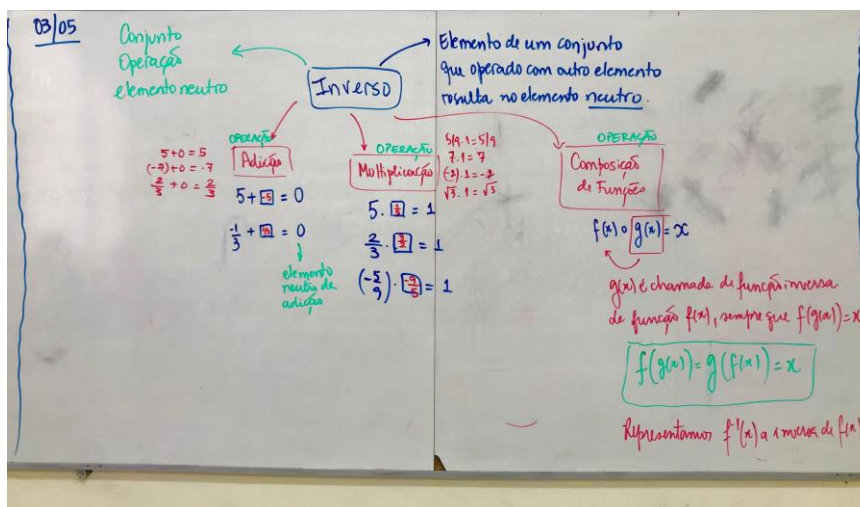 03/05
Conjunto
Operação
elemento neutro
Inverso
Elemento de um conjunto
que operado com outro elemento
resulta no elemento neutro.
5+0=5
(-7)+0=-7
2/3 + 0 = 2/3
OPERAÇÃO
Adição
5 + -5 = 0
-1/3 + 1/3 = 0
elemento
neutro da
adição
OPERAÇÃO
Multiplicação
5/9.1=5/9
7.1=7
(-2).1=-2
√3.1=√3
5 . 1/5 = 1
2/3 . 3/2 = 1
(-5/9) . -9/5 = 1
OPERAÇÃO
Composição
de Funções
f(x) o g(x) = x
g(x) é chamada de função inversa
da função f(x), sempre que f(g(x))=x
f(g(x)) = g(f(x)) = x
Representamos f⁻¹(x) a inversa de f(x)